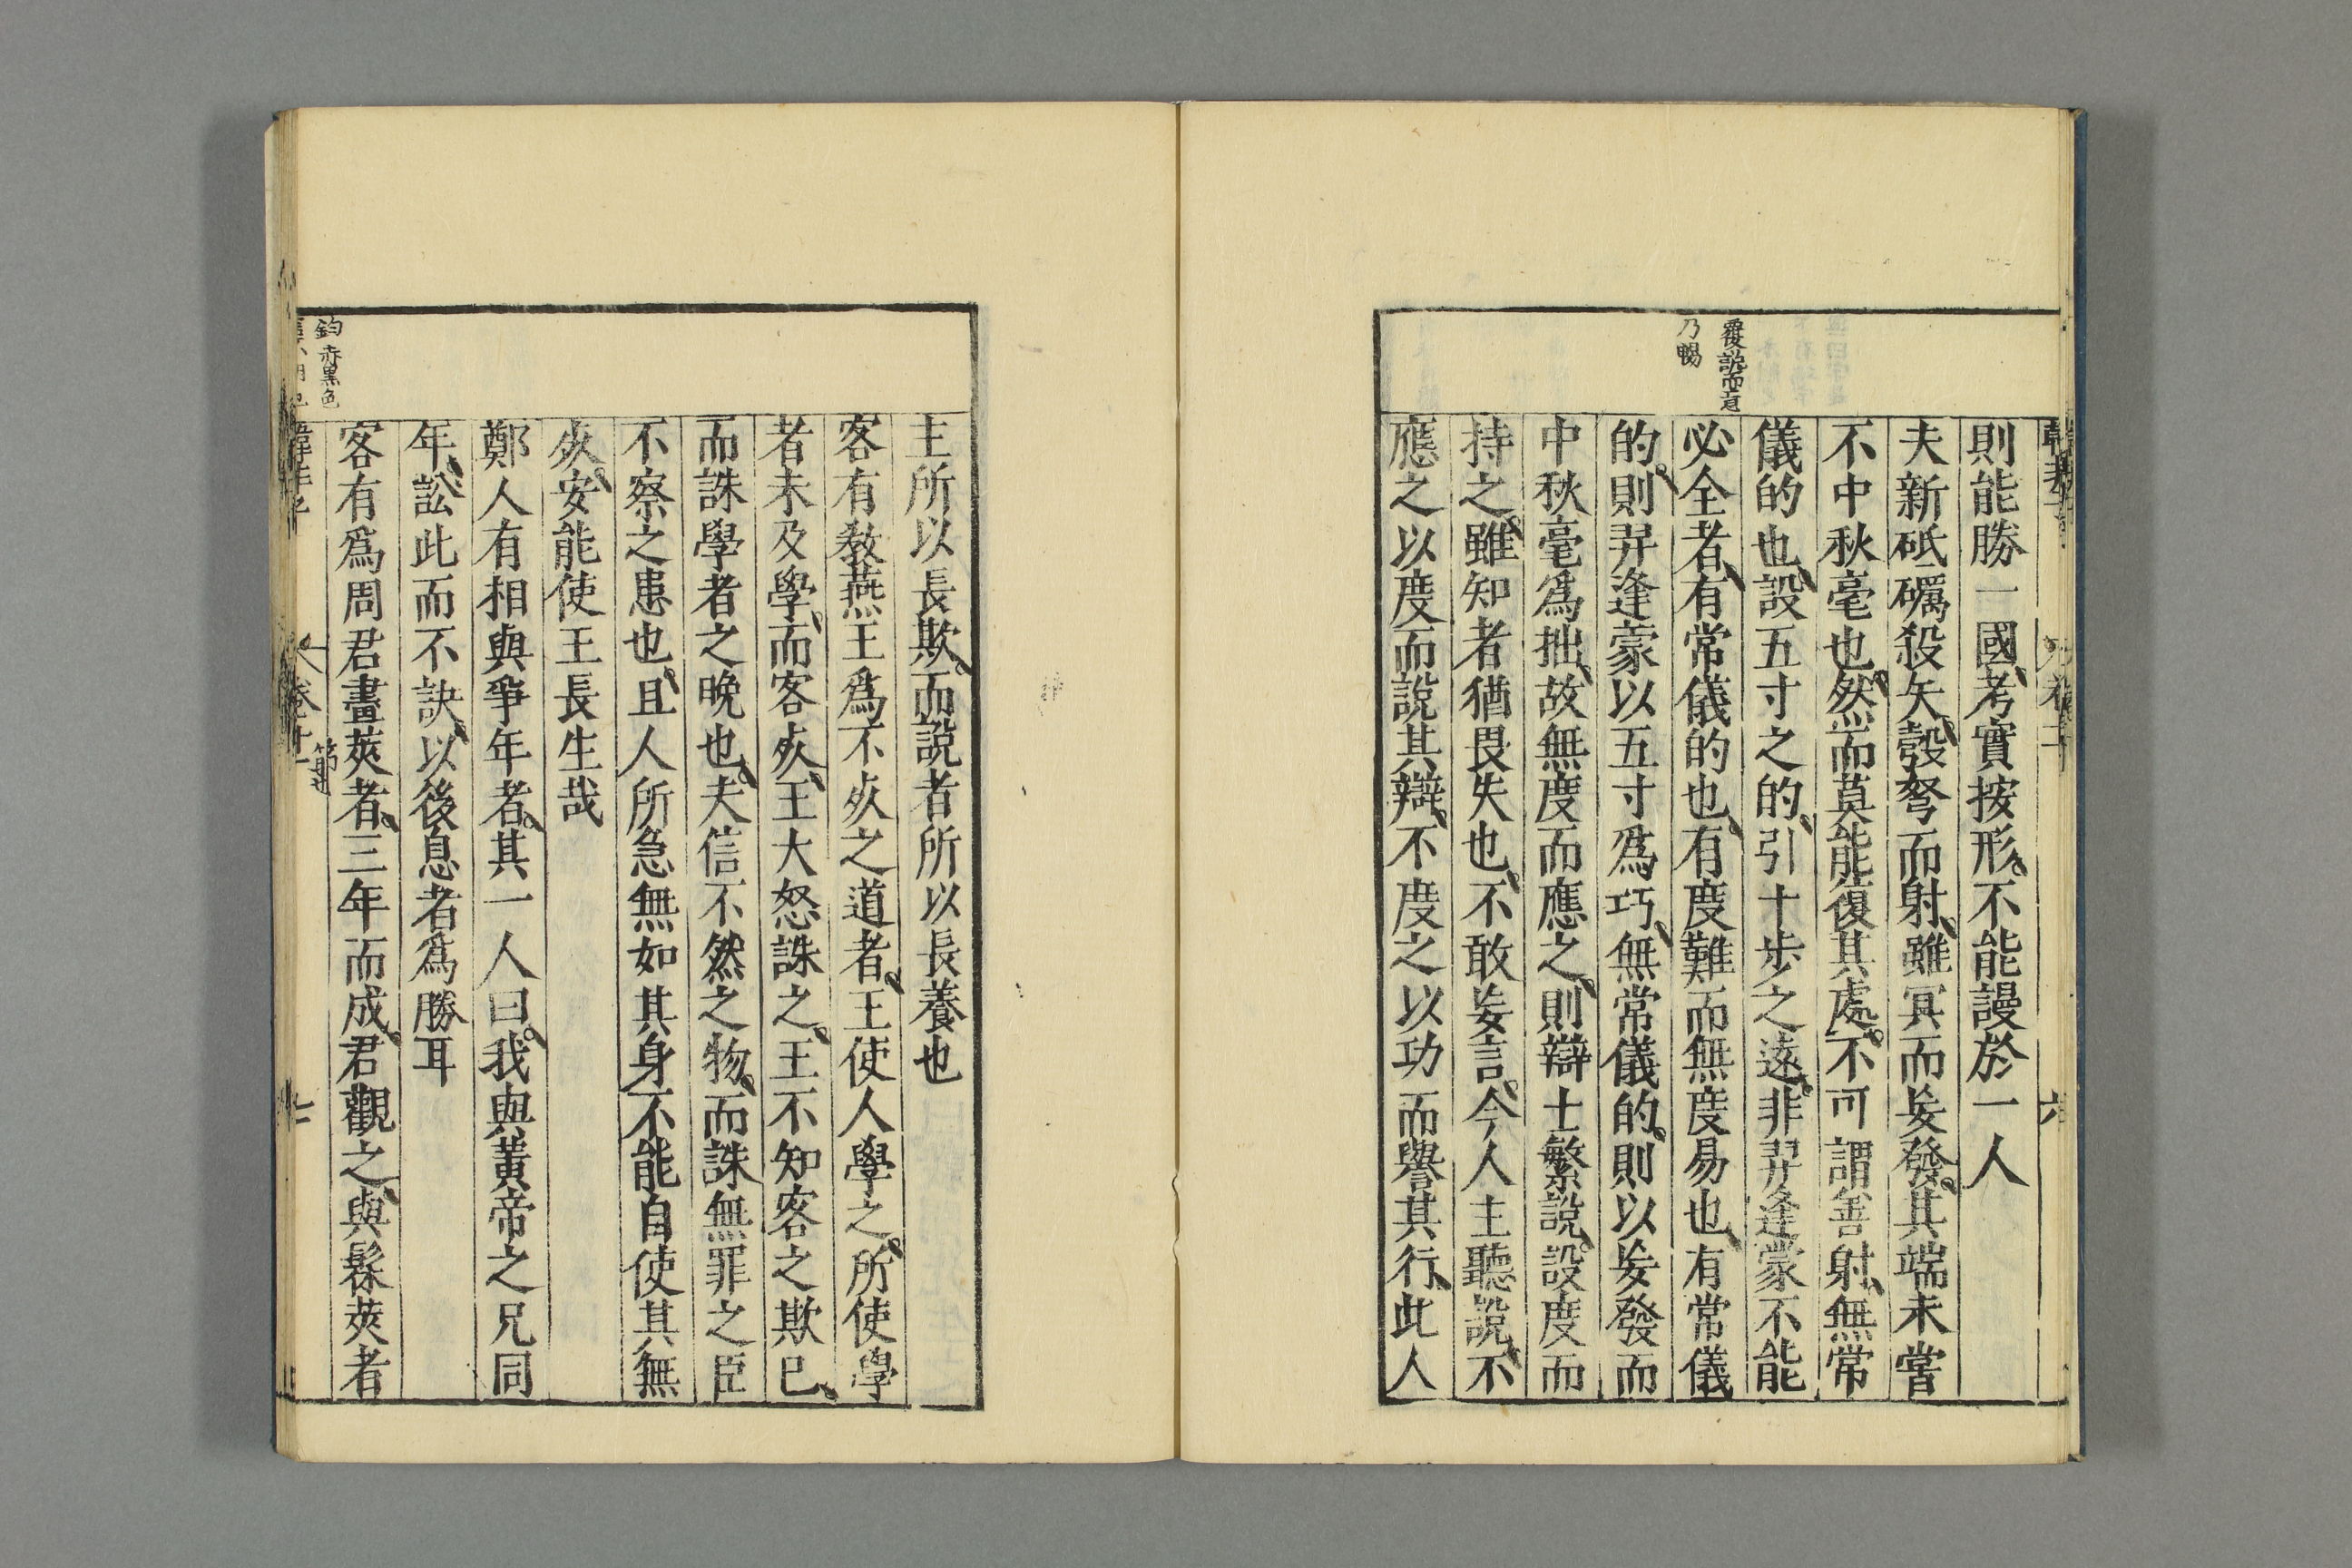 覆說而意
乃暢
則能勝一國、考實按形、不能謾於一人
夫新砥礪殺矢、彀弩而射、雖冥而妄發、其端未嘗
不中秋毫也、然而莫能復其處、不可謂善射、無常
儀的也、設五寸之的、引十步之遠、非羿逢蒙不能
必全者、有常儀的也、有度難而無度易也、有常儀
的、則羿逢蒙以五寸爲巧、無常儀的、則以妄發而
中秋毫爲拙、故無度而應之、則辯士繁說、設度而
持之、雖知者猶畏失也、不敢妄言、今人主聽說、不
應之以度而說其辯、不度之以功而譽其行、此人
主所以長欺、而說者所以長養也
客有敎燕王爲不死之道者、王使人學之、所使學
者未及學、而客死、王大怒誅之、王不知客之欺已、
而誅學者之晚也、夫信不然之物、而誅無罪之臣
不察之患也、且人所急無如其身、不能自使其無
死、安能使王長生哉
鄭人有相與爭年者、其一人曰、我與黃帝之兄同
年、訟此而不訣、以後息者爲勝耳
客有爲周君畫莢者、三年而成、君觀之、與髹莢者
赤黑色
卷十一